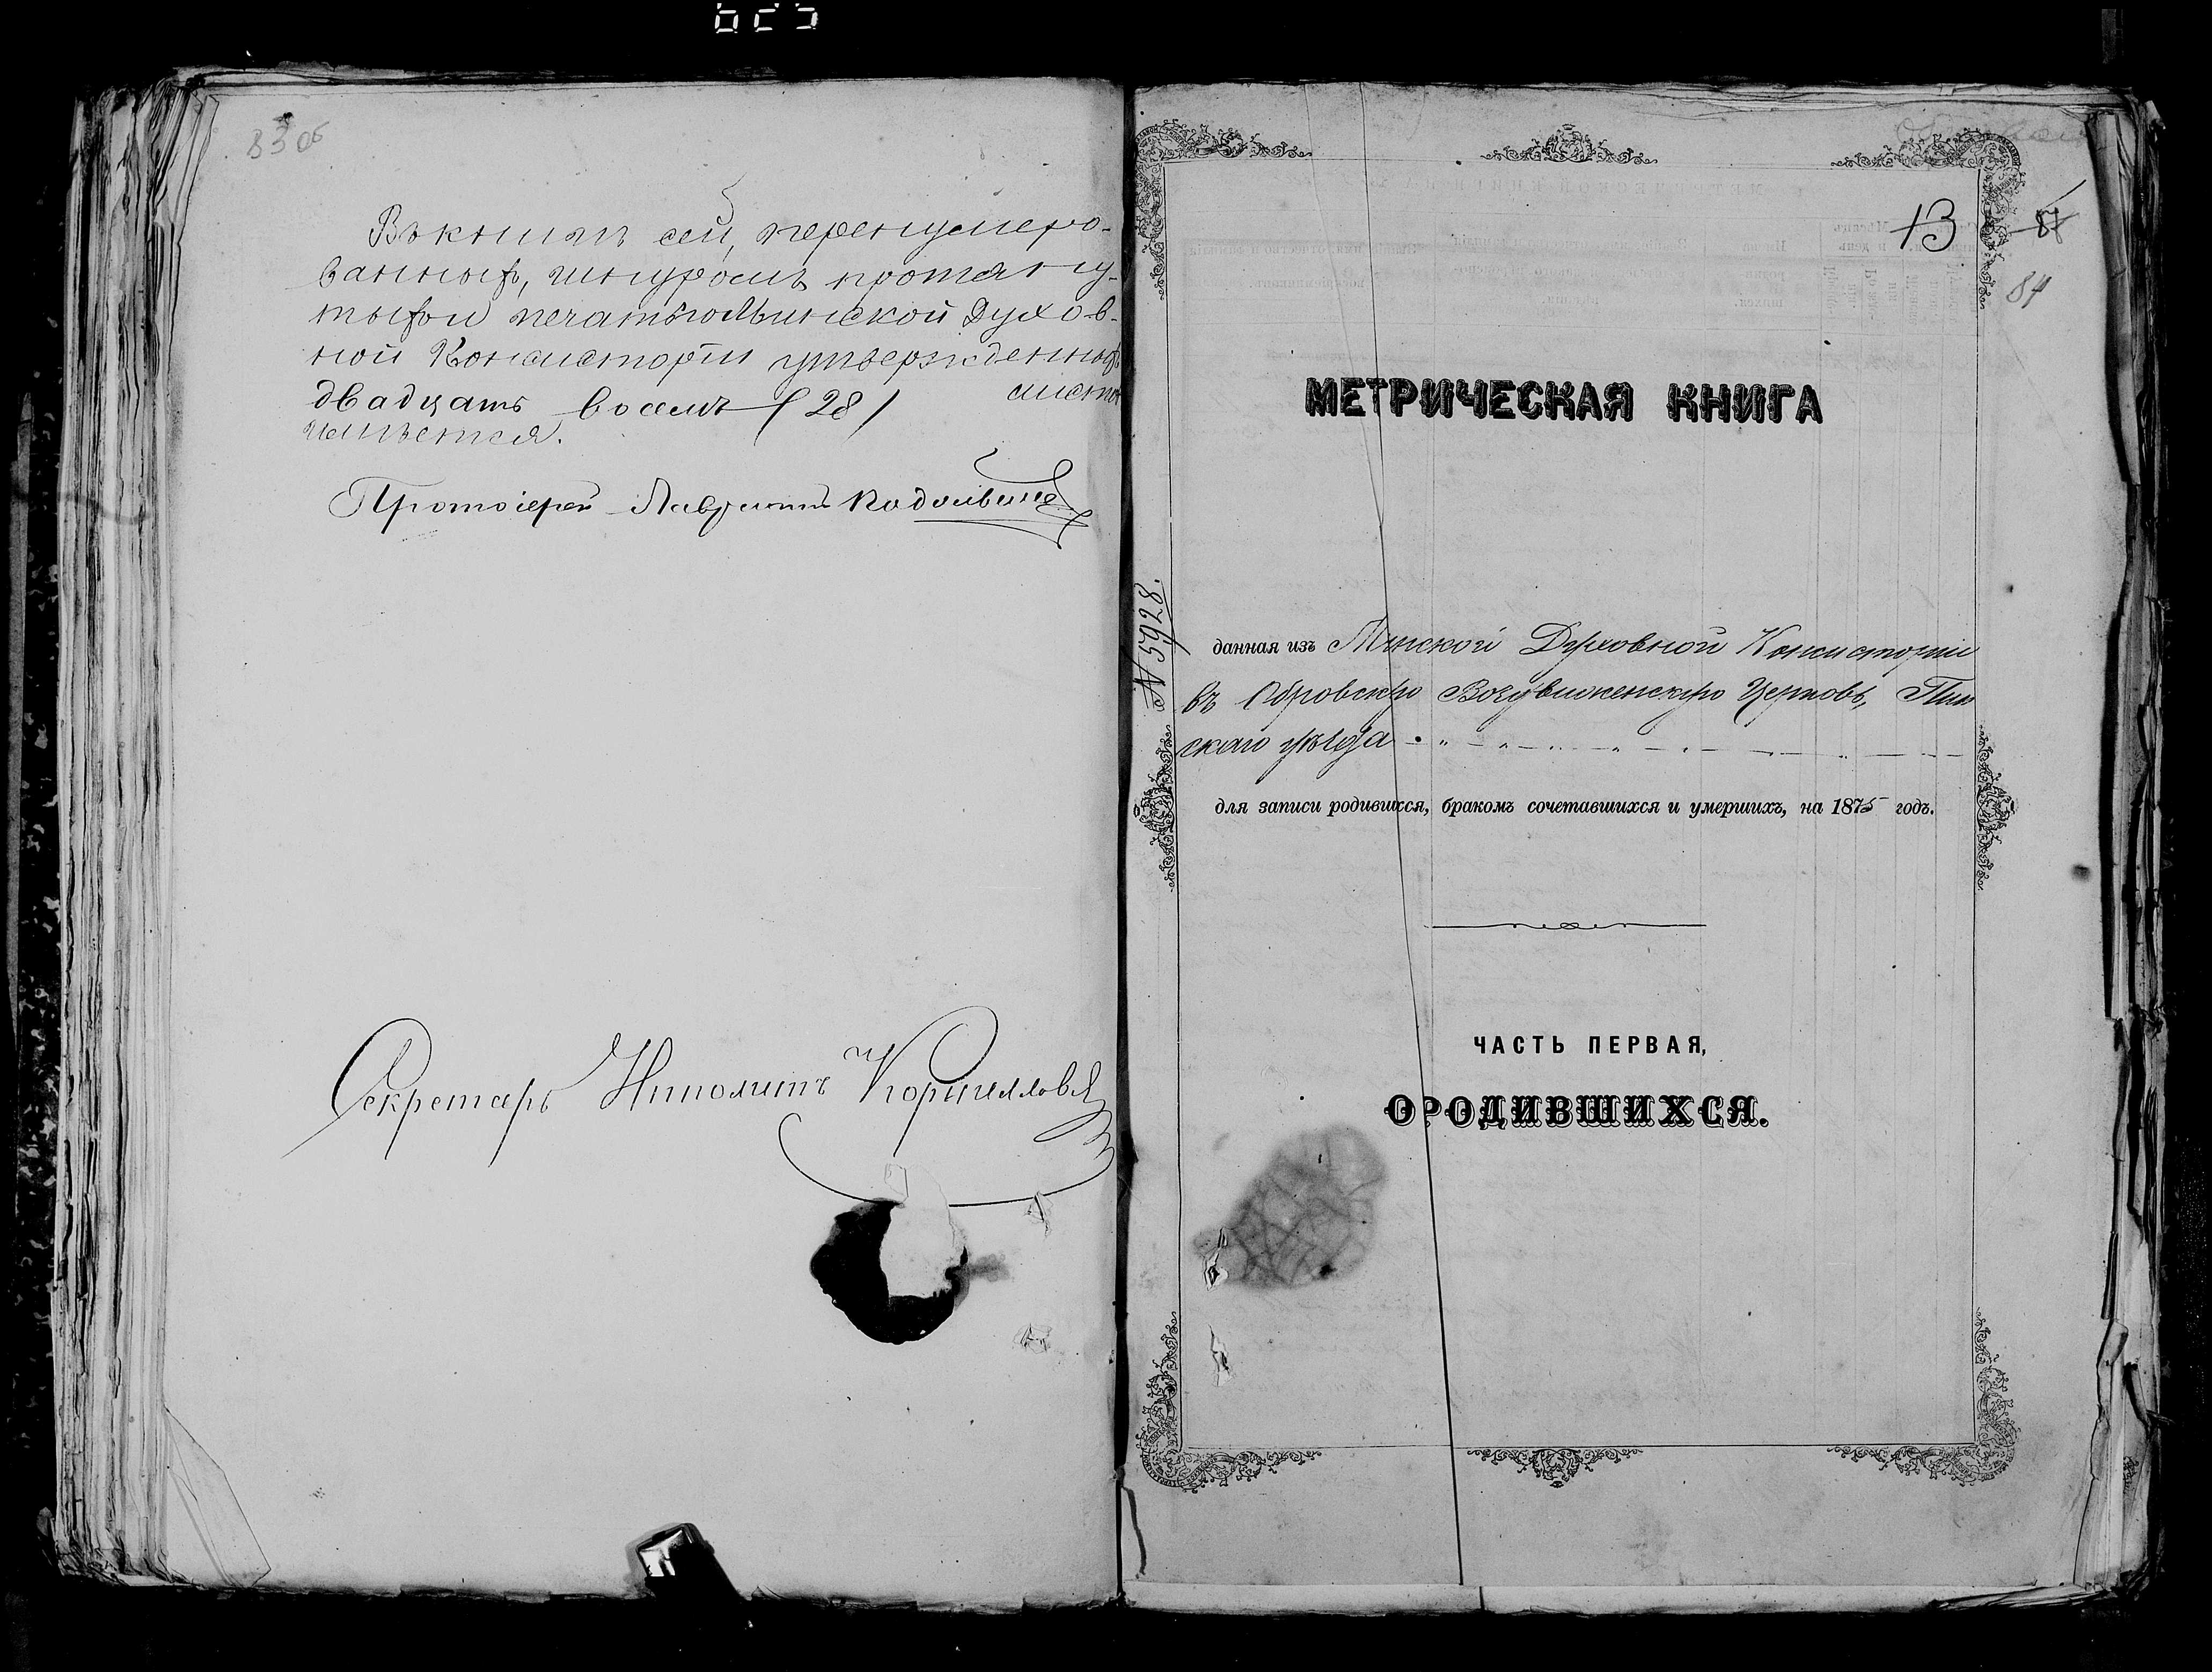 83 об
Въ книгѣ сей, перенумеро-
ванныхъ, шнуромъ протяну-
тыхъ и печатью Минской Духов-
ной Консисторіи утвержденныхъ
листовъ
двадцать восемь (28)
имѣется.
Протоіерей
Секретарь Иполитъ Корнилловъ
13
87
84
МЕТРИЧЕСКАЯ КНИГА
№ 5928.
данная изъ Минской Духовной Консисторіи
въ Обровскую Воздвиженскую Церковь, Пин
скаго уѣзда
для записи родившихся, бракомъ сочетавшихся и умершихъ, на 1875 годъ.
ЧАСТЬ ПЕРВАЯ,
О РОДИВШИХСЯ.